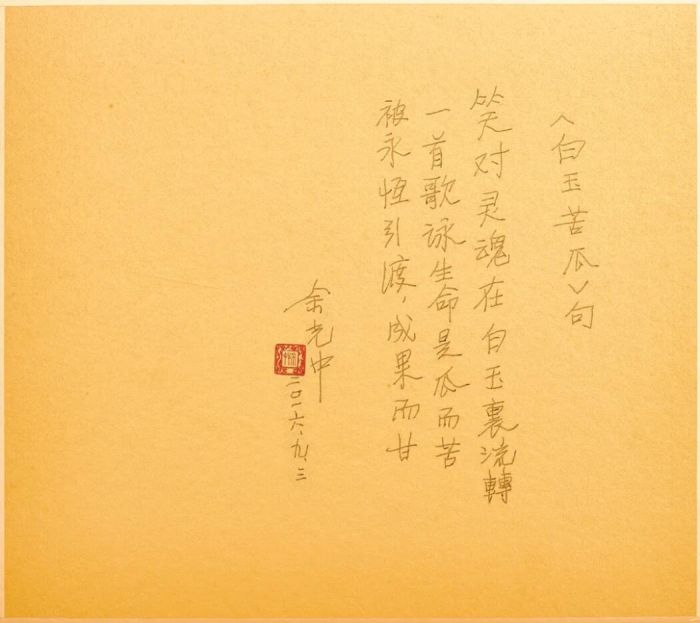 〈白玉苦瓜〉句
笑对灵魂在白玉裏流轉
一首歌詠生命是瓜而苦
被永恆引渡，成果而甘
余光中
二〇一六、九、三